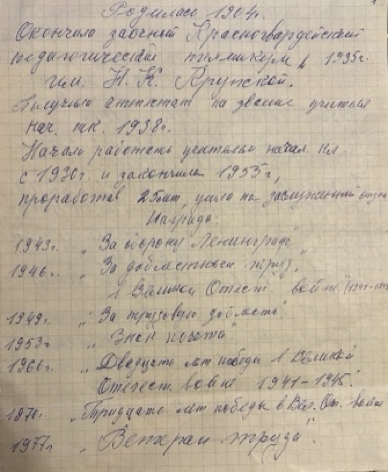 Родилась 1904г.
Окончила заочный Красногвардейский
педагогический техникум в 1935г.
им. Н. К. Крупской.
Получила аттестат на звание учителя
нач. шк. 1938г.
Начала работать учителем начал. кл.
с 1930г. и закончила 1955г,
проработав 25 лет, ушла на заслуженный отдых
Награды:
1943г. „За оборону Ленинграда"
1946г. „За доблестный труд
в Великой Отечест. войне"
1949г. „За трудовую доблесть"
1953г „Знак почета"
„Двадцать лет победы в Великой
Отечест. войне 1941-1945".
„Тридцать лет победы в Вел. От. войне
1977г „Ветеран труда".